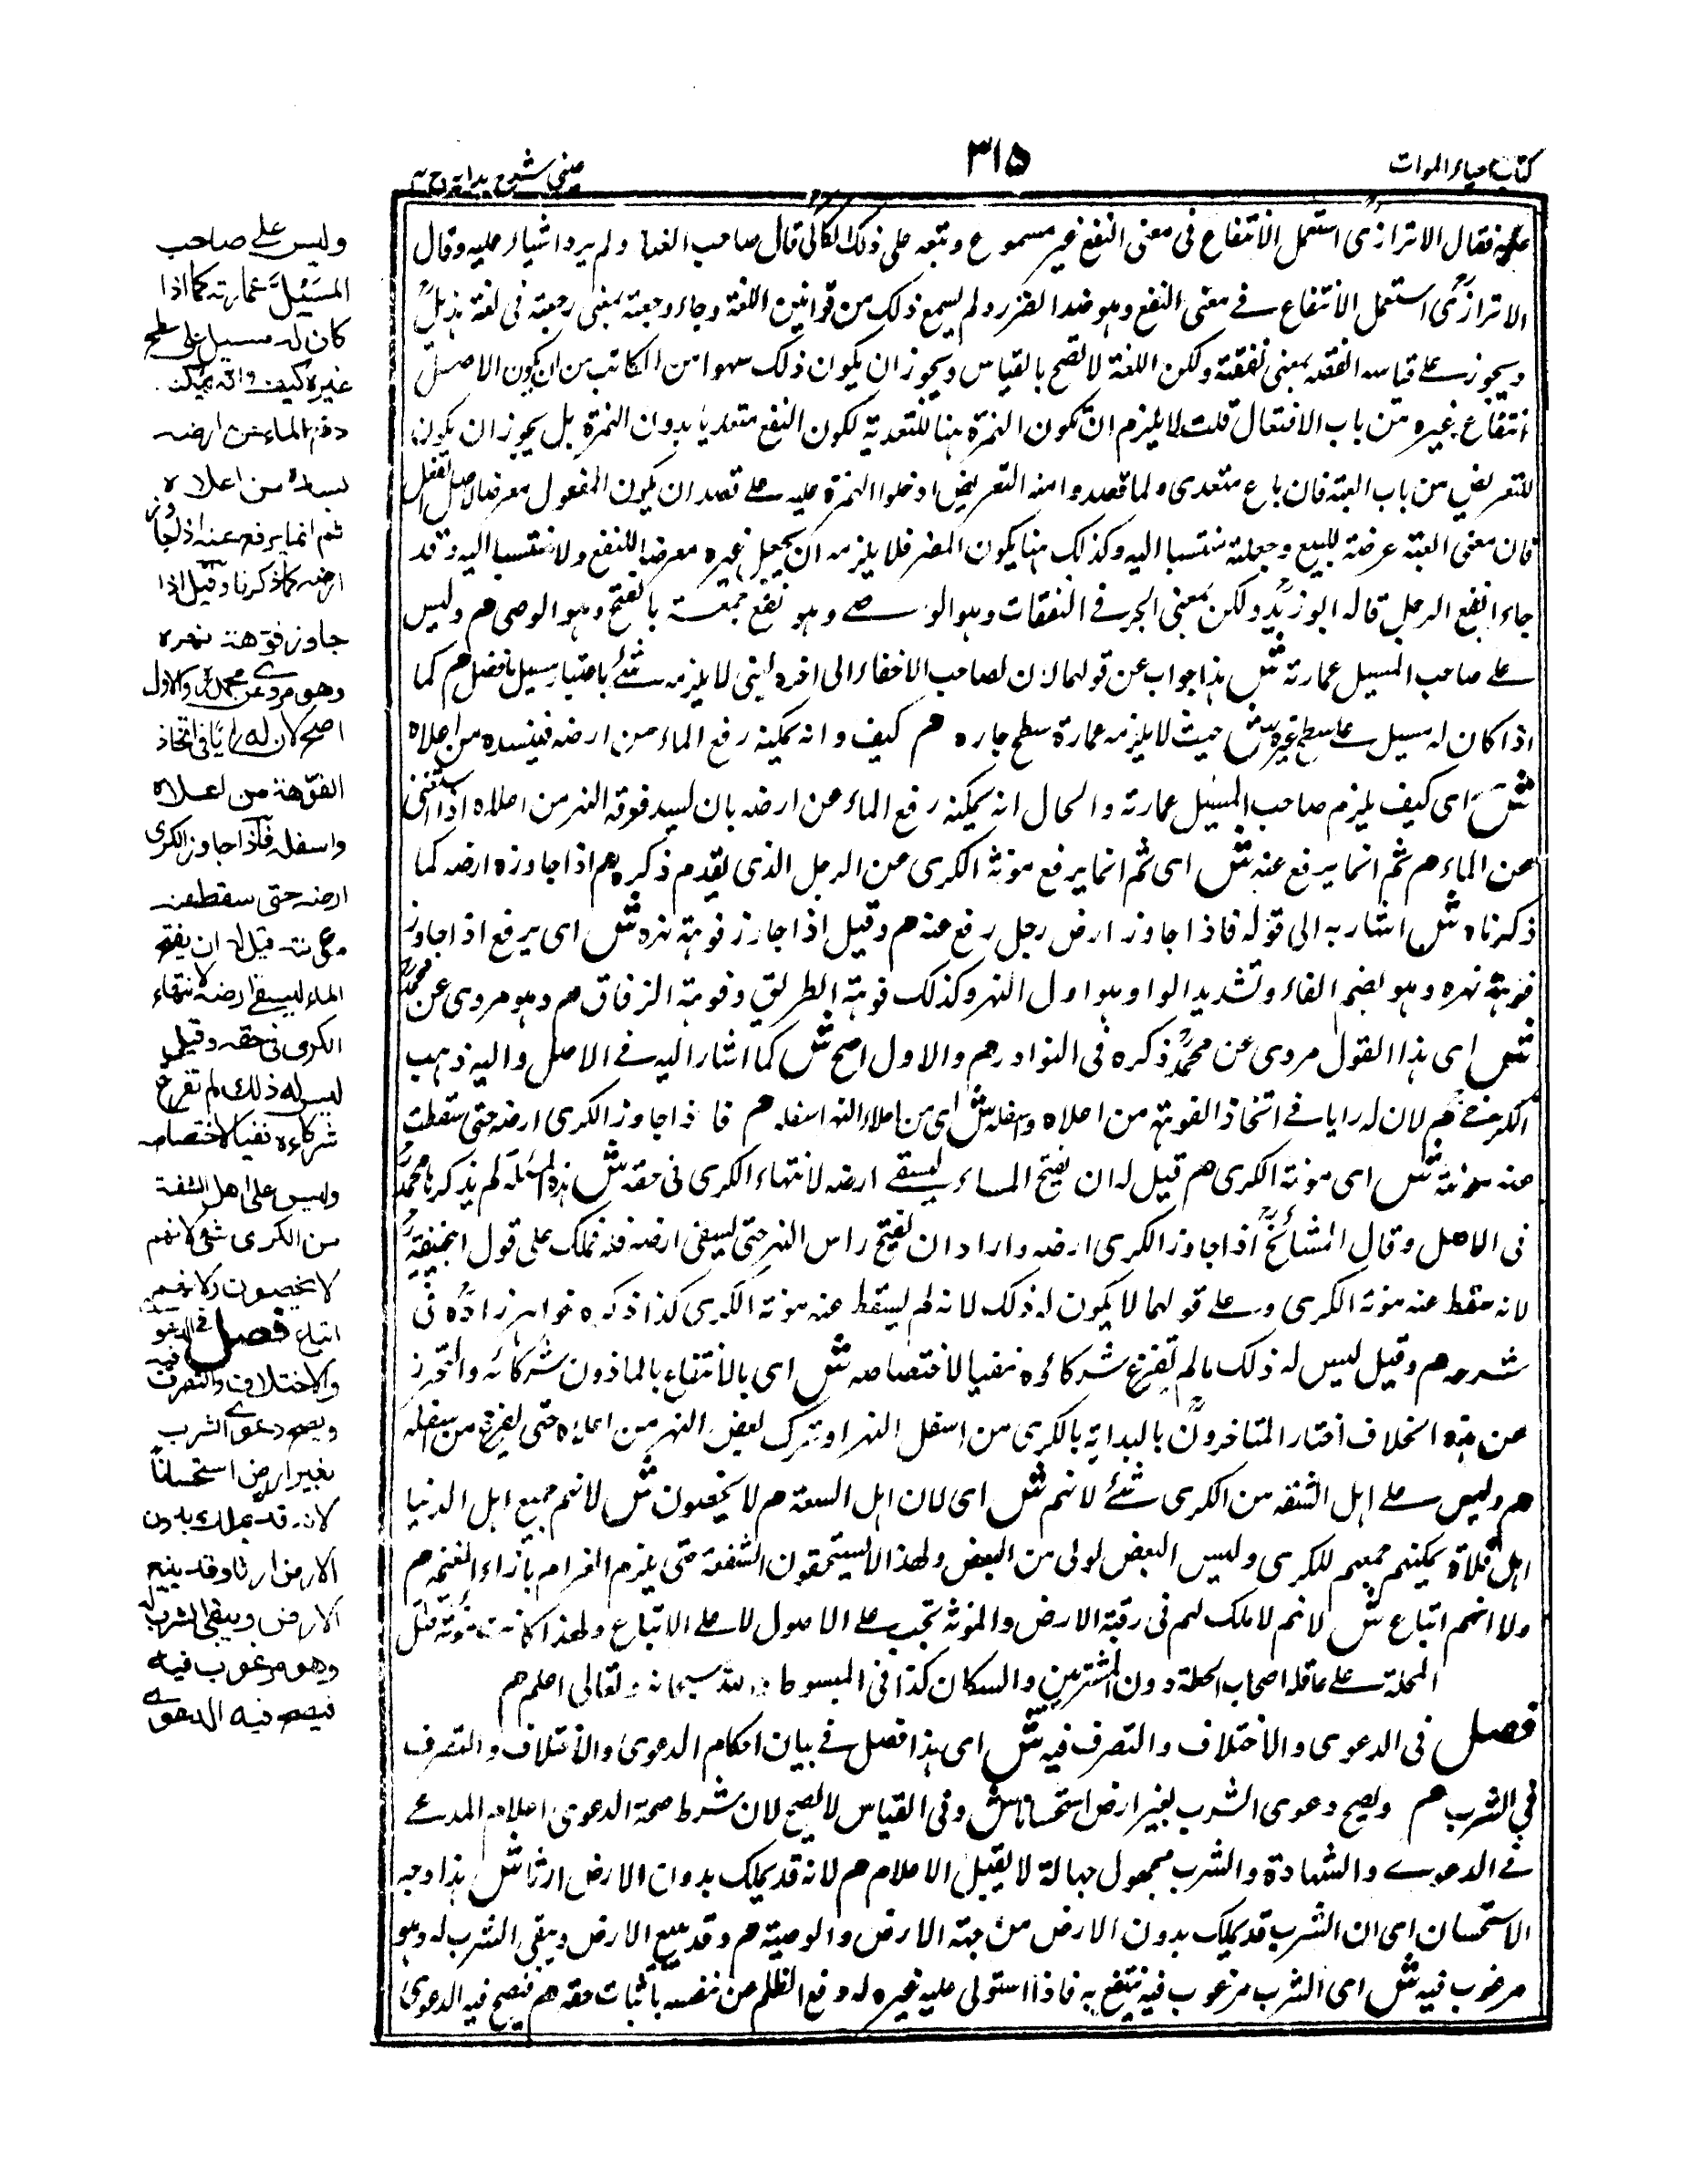 كتاب احياء الموات
٣١۵
عینی شرح ہدایہ ج ۴
فقال الاترازی استعمل الانتفاع فی معنی النفع غیر مسموع وتبعه علی ذلك الكاكی قال صاحب ولم یرد اشیاء علیه وقال
الاترازی استعمل الانتفاع فی معنی النفع وهو ضد الضرر ولم یسمع ذلك من قوانین اللغة وجاء رجعته بمعنی رجعته فی لغة هذیل
ویجوز علی قیاسه انفقته بمعنی نفقته ولكن اللغة لا تصح بالقیاس ویجوز ان یكون ذلك سهوا من الكاتب بان یكون الاصل
انتفاع غیره من باب الافتعال قلت لا یلزم ان تكون الهمزة هنا للتعدیة لكون النفع متعدیا بدون الهمزة بل یجوز ان یكون
للتعریض من باب ابعته فان باع متعدی ولما قصدوا منه التعریض ادخلوا الهمزة علیه علی قصد ان یكون المفعول معرضا لاصل الفعل
فان معنی ابعته عرضته للبیع وجعلته منتسبا الیه وكذلك هنا یكون المضر فلا یلزمه ان یجعل غیره معرضا للنفع ولا منتسبا الیه وقد
جاء انفع الرجل قاله ابو زید ولكن بمعنی اتجر فی النفقات وهو وهو نفع بالفتح وهو م ولیس
علی صاحب المسیل عمارته ش هذا جواب عن قولهما لان لصاحب الاخفاء الی اخره یعنی لا یلزمه شئ باعتبار مسیل ما فضل م كما
اذا كان له مسیل علی سطح غیره ش حیث لا یلزمه عمارة سطح جاره م كیف وانه یمكنه رفع الماء من ارضه فیسده من اعلاه
ش ای كیف یلزم صاحب المسیل عمارته والحال انه یمكنه رفع الماء عن ارضه بان یسد فوهة النهر من اعلاه اذا استغنی
عن الماء م ثم انما یرفع عنه ش ای ثم انما یرفع مونة الكری عن الرجل الذی تقدم ذكره م اذا جاوزه ارضه كما
ذكرناه ش اشار به الی قوله فاذا جاوز ارض رجل رفع عنه م وقیل اذا جاوز فوهة نهره ش ای یرفع اذا جاوز
فوهة نهره وهو بضم الفاء وتشدید الواو هو اول النهر وكذلك فوهة الطریق وفوهة الزقاق م وهو مروی عن محمد
ش ای هذا القول مروی عن محمد ذكره فی النوادر م والاول اصح ش كما اشار الیه فی الاصل والیه ذهب
الكرخی م لان له رایا فی اتخاذ الفوهة من اعلاه واسفله ش ای من اعلاء النهر اسفله م فاذا جاوز الكری ارضه حتی سقطت
عنه مونته ش ای مونة الكری م قیل له ان یفتح الماء لیسقی ارضه لانتهاء الكری فی حقه ش هذه المسئلة لم یذكرها محمد
فی الاصل وقال المشائخ اذا جاوز الكری ارضه واراد ان یفتح راس النهر حتی یسقی ارضه فله ذلك علی قول ابی حنیفة
لانه سقط عنه مونة الكری وعلی قولهما لا یكون له ذلك لانه لم یسقط عنه مونة الكری كذا ذكره خواهرزاده فی
شرحه م وقیل لیس له ذلك ما لم تفرغ شركائه نفیا لاختصاصه ش ای بالانتفاع بالماء دون شركائه والتحرز
عن هذه الخلاف اختار المتاخرون بالبدایة بالكری من اسفل النهر او بترك بعض النهر من اعلاه حتی یفرغ من اسفله
م ولیس علی اهل الشفة من الكری شئ لانهم ش ای لان اهل السعة م لا یحصون ش لانهم جمیع اهل الدنیا
اهل فلاة یمكنهم جمعهم للكری ولیس البعض اولی من البعض ولهذا لا یستحقون الشفعة حتی یلزم الغرام بازاء الغنم م
ولانهم اتباع ش لانهم لا ملك لهم فی رقبة الارض والمونة تجب علی الاصول لا علی الاتباع ولهذا كانت
المحلة علی عاقلة اصحاب الخطة دون المشترین والسكان كذا فی المبسوط والله سبحانه وتعالی اعلم م
فصل فی الدعوی والاختلاف والتصرف فیه ش ای هذا فصل فی بیان احكام الدعوی والاختلاف والتصرف
فی الشرب م ویصح دعوی الشرب بغیر ارض استحسانا ش وفی القیاس لا یصح لان شرط صحة الدعوی اعلام المدعی
فی الدعوی والشهادة والشرب مجهول جهالة لا یقبل الاعلام م لانه قد یملك بدون الارض ارثا ش هذا وجه
الاستحسان ای ان الشرب قد یملك بدون الارض من جهة الارض والوصیة م وقد یبیع الارض ویبقی الشرب له وهو
مرغوب فیه ش ای الشرب مرغوب فیه ینتفع به فاذا استولی علیه غیره له دفع الظلم عن نفسه باثبات حقه م فیصح فیه الدعوی
ولیس علی صاحب
المسیل عمارته كما اذا
كان له مسیل علی سطح
غیره كیف وانه یمكنه
دفع الماء عن ارضه
بسده من اعلاه
ثم انما یرفع عنه اذا جاوز
ارضه كما ذكرنا وقیل اذا
جاوز فوهة نهره
وهو مروی عن محمد والاول
اصح لان له رأیا فی اتخاذ
الفوهة من اعلاه
واسفله فاذا جاوز الكری
ارضه حتی سقط عنه
مؤنته قیل له ان یفتح
الماء لیسقی ارضه لانتهاء
الكری فی حقه وقیل
لیس له ذلك ما لم تفرغ
شركاءه نفیا لاختصاصه
ولیس علی اهل الشفة
من الكری شئ لانهم
لا یحصون ولانهم
اتباع فصل فی الدعوی
والاختلاف والتصرف فیه
ویصح دعوی الشرب
بغیر ارض استحسانا
لانه قد یملك بدون
الارض ارثا وقد یبیع
الارض ویبقی الشرب له
وهو مرغوب فیه
فیصح فیه الدعوی